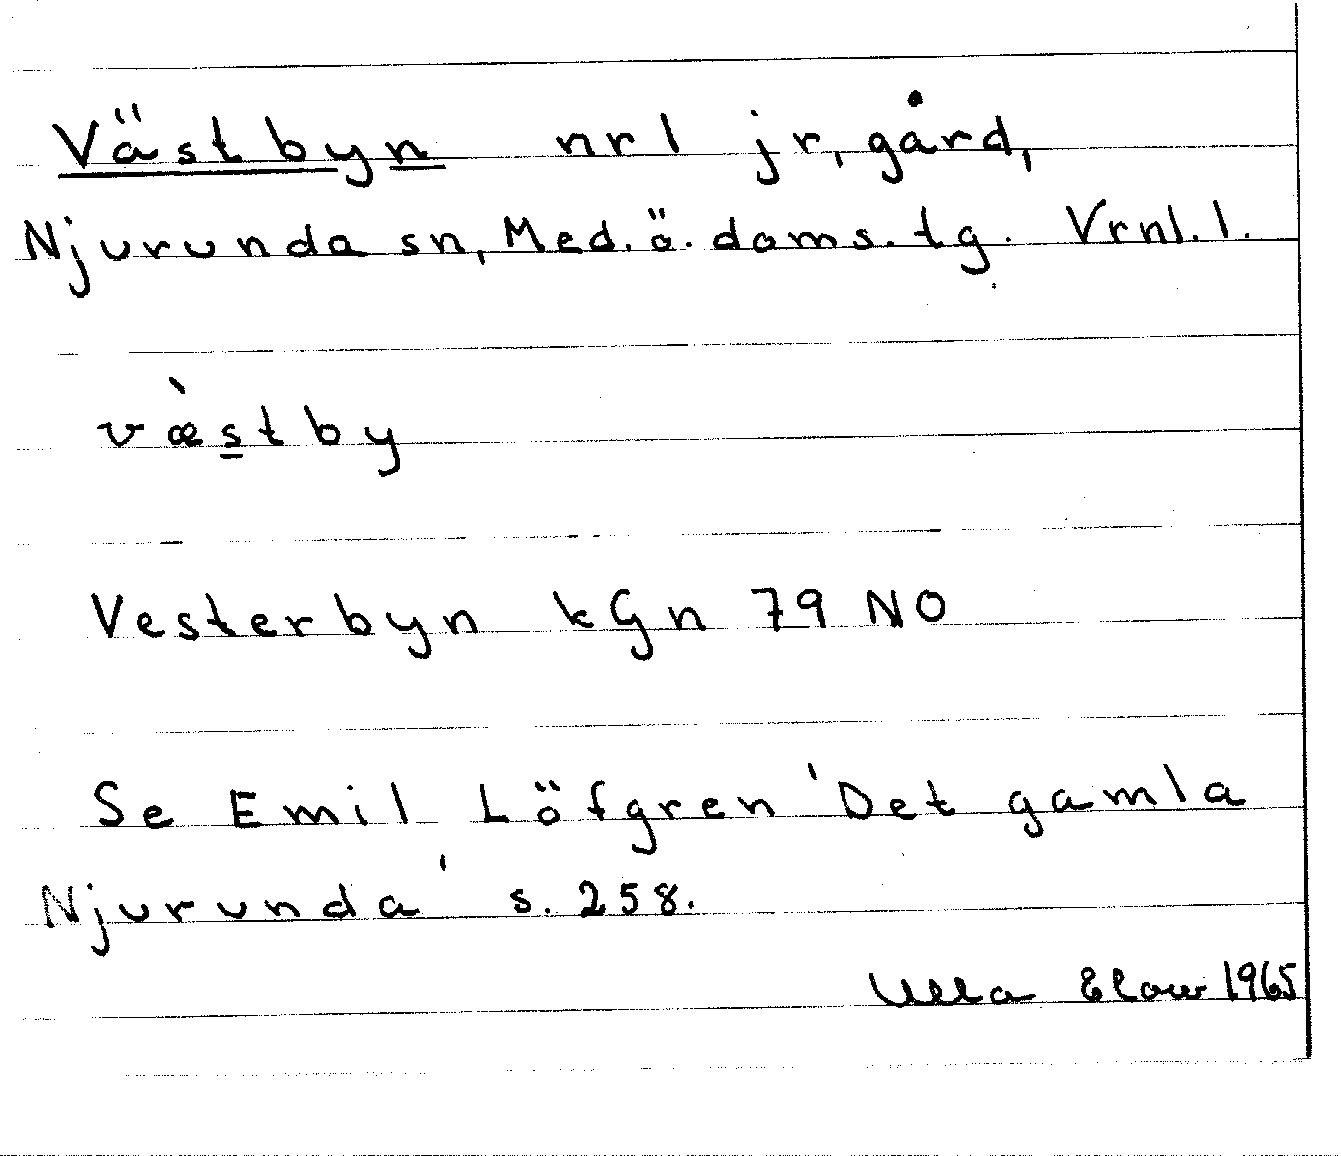 Västbyn nr 1 jr, gård,
Njurunda sn, Med. ö. doms. tg. Vrnl. l.
væ̀stby
Vesterbyn kGn 79 NO
Se Emil Löfgren 'Det gamla
Njurunda' s. 258.
Ulla Elow 1965